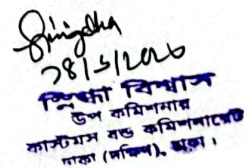 28/5/2026
স্নিগ্ধা বিশ্বাস
উপ কমিশনার
কাস্টমস বন্ড কমিশনারেট
ঢাকা (দক্ষিণ), ঢাকা।